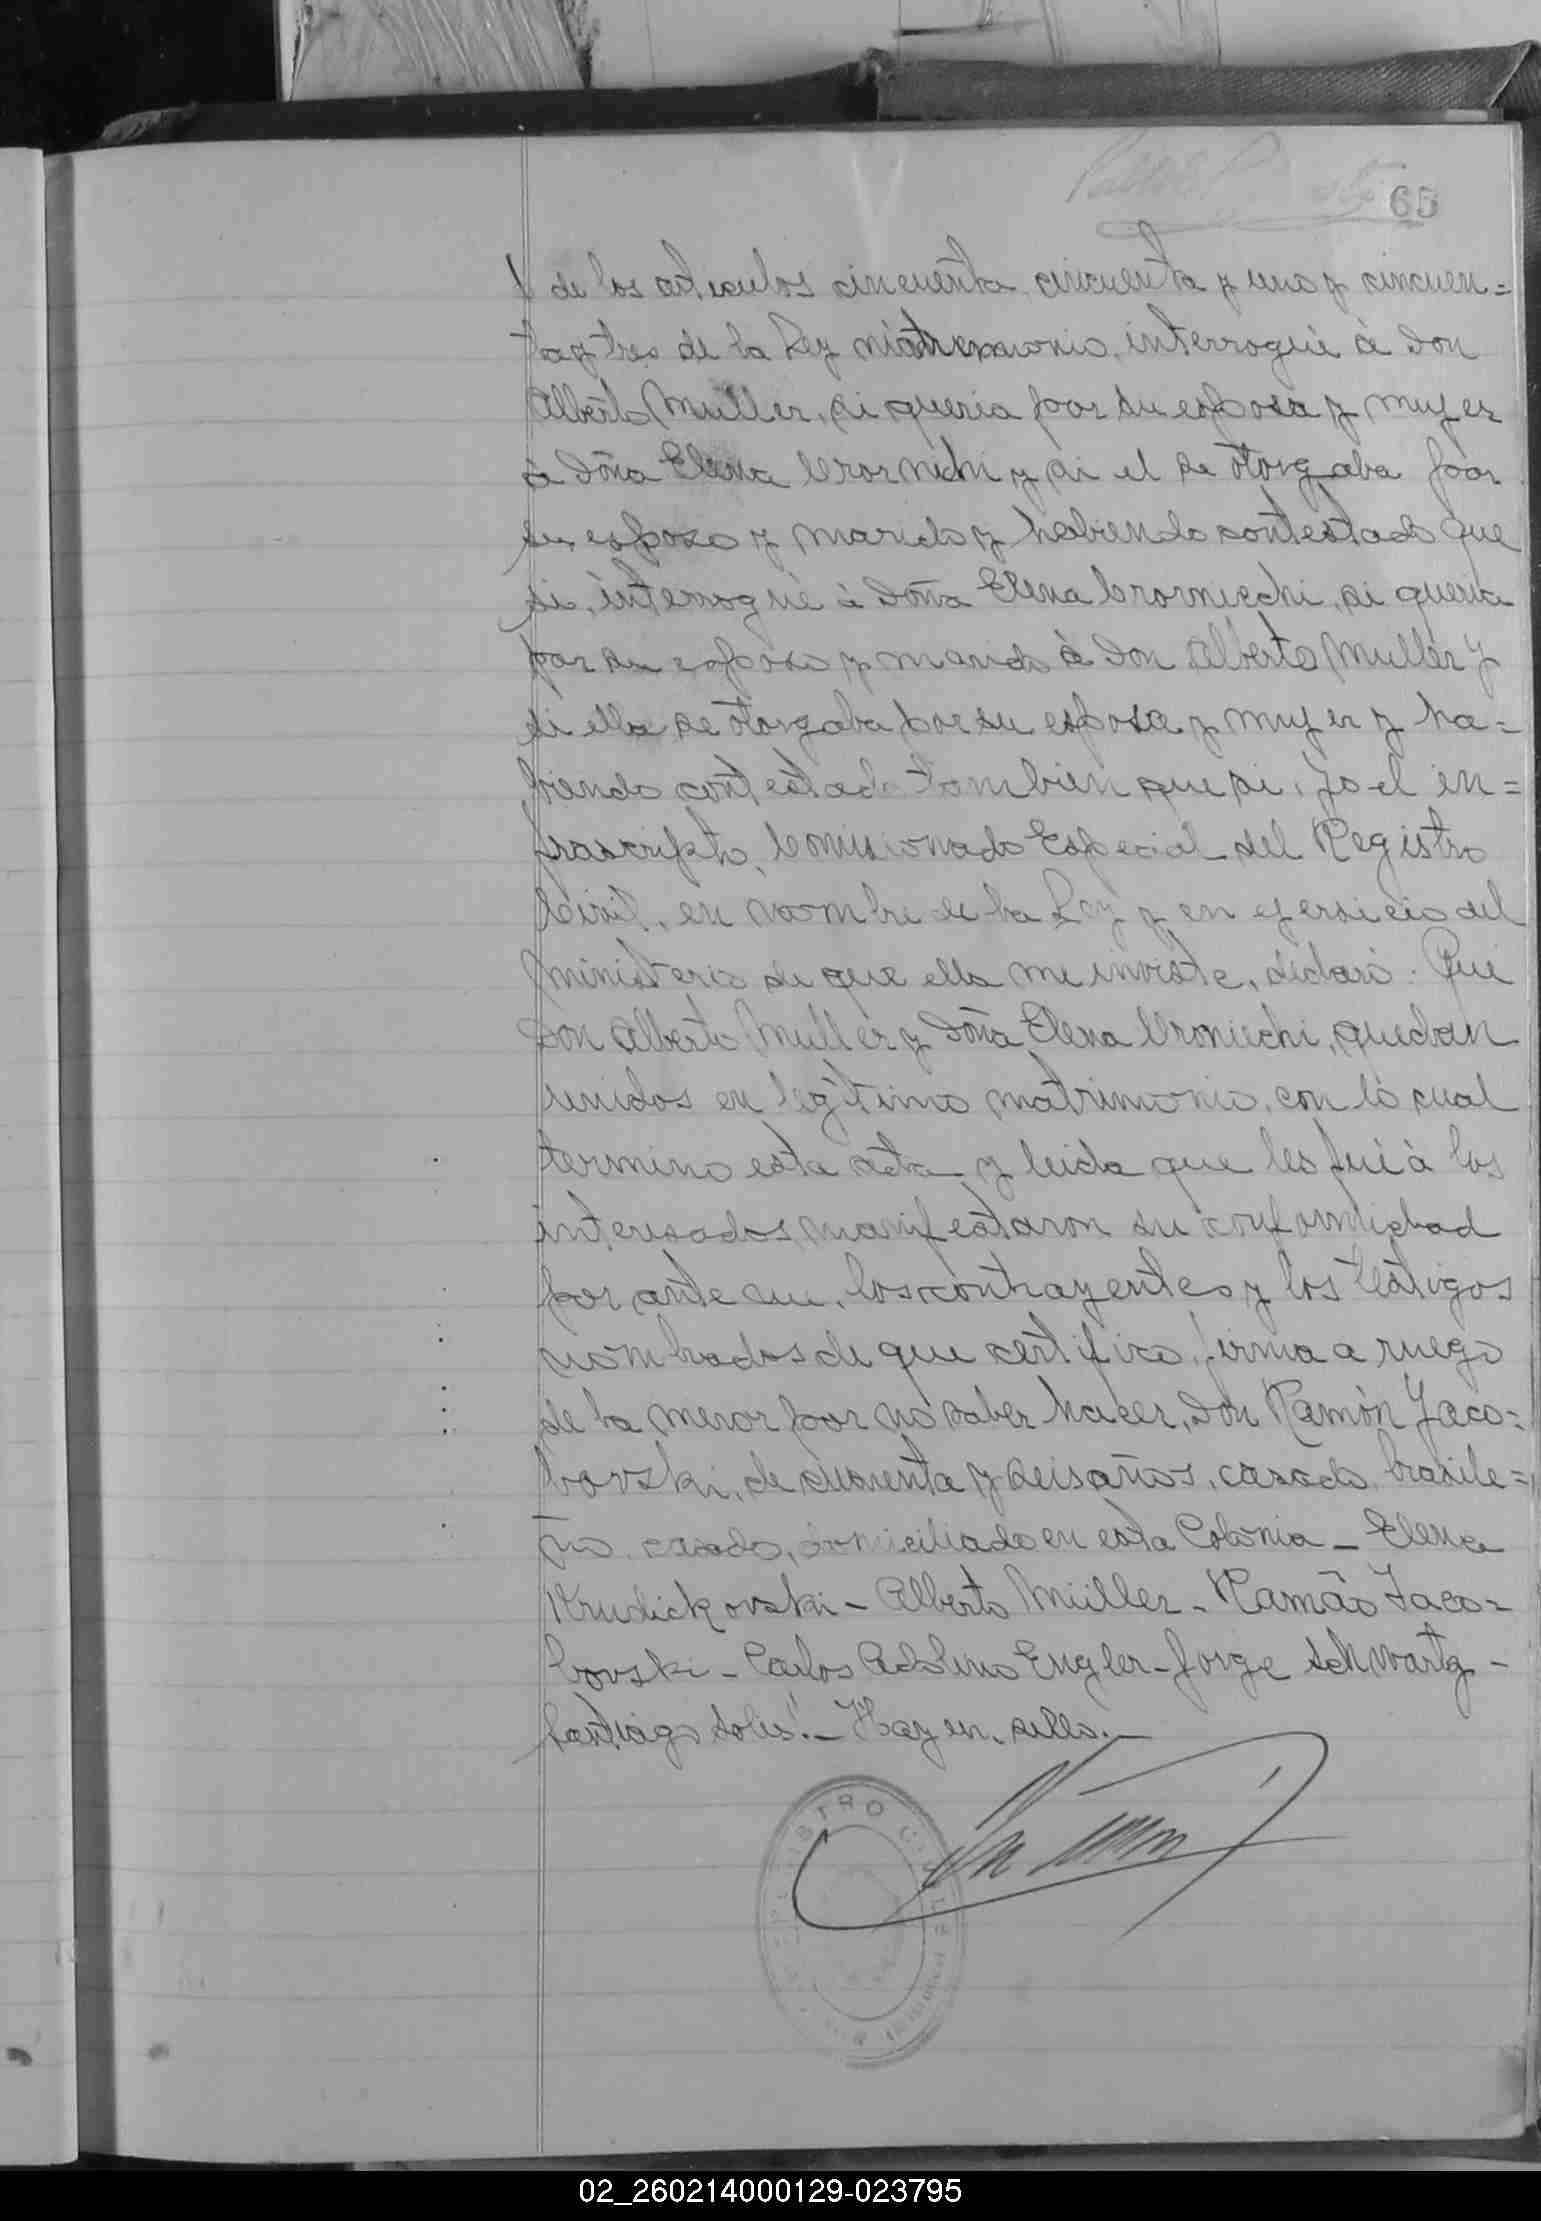 65
/ de los articulos cincuenta, cincuenta y uno y cincuen=
taytres de la Ley matremonio, interrogué á Don
Alberto Muller, si queria por su esposa y mujer
á Doña Elena Crornichi y si el se otorgaba por
su esposo y marido y habiendo contestado que
si, interrogué á Doña Elena Crorniechi, si queria
por su esposo y marido á Don Alberto Muller y
si ella se otorgaba por su esposa y mujer y ha=
biendo contestado tambien que si, Yo el in=
frascripto, Comisionado Especial del Registro
Civil, en nombre de la Ley y en ejersicio del
Ministerio de que ella me inviste, declaro: Que
Don Alberto Muller y Doña Elena Croniechi, quedan
unidos en legítimo matrimonio, con lo cual
termino esta acta y leida que les fué á los
interesados, manifestaron su conformidad
por ante mi, los contrayentes y los testigos
nombrados de que certifico, firma a ruego
de la menor por no saber hacer, Don Ramón Jaco=
bovski, de cuarenta y seis años, casado, brasile=
ño, casado, domiciliado en esta Colonia – Elena
Krudickovski – Alberto Müller – Ramão Jaco=
bovski – Carlos Adolino Engler – Jorge Schwartz –
Santiago Solis. – Hay un sello. –
REGISTRO CIVIL